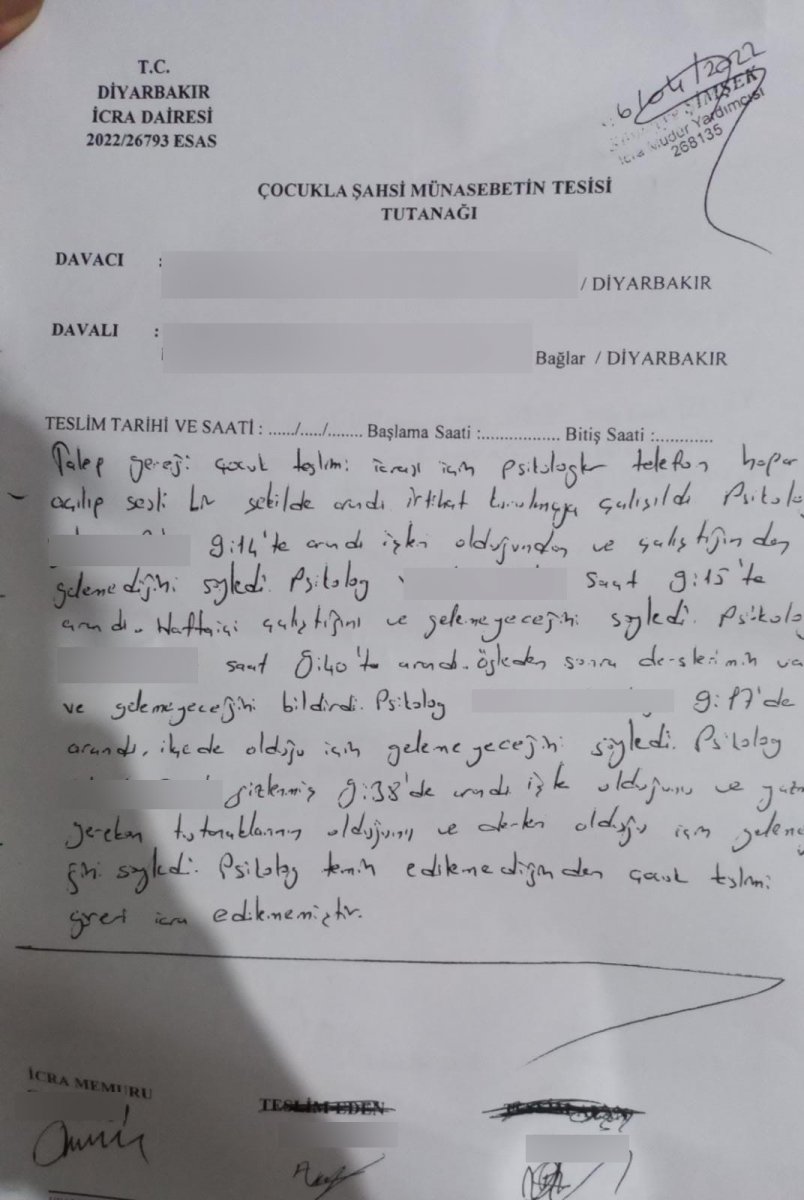 T.C.
DİYARBAKIR
İCRA DAİRESİ
2022/26793 ESAS
6/04/2022
ŞİMŞEK
İcra Müdür Yardımcısı
268135
ÇOCUKLA ŞAHSİ MÜNASEBETİN TESİSİ
TUTANAĞI
DAVACI :
/ DİYARBAKIR
DAVALI :
Bağlar / DİYARBAKIR
TESLİM TARİHİ VE SAATİ : ....../...../........ Başlama Saati :................. Bitiş Saati :............
Talep gereği çocuk teslimi icrası için psikologlar telefon hopar
açılıp sesli bir şekilde arandı irtibat kurulmaya çalışıldı Psikolo
9:14'te arandı işleri olduğundan ve çalıştığından
gelemediğini söyledi. Psikolog saat 9:15'te
arandı. Haftaiçi çalıştığını ve gelemeyeceğini söyledi. Psikolo
saat 9:40'ta arandı. öğleden sonra derslerimin va
ve gelemeyeceğini bildirdi. Psikolog 9:17'de
arandı, ilçede olduğu için gelemeyeceğini söyledi. Psikolog
9:38'de arandı işte olduğunu ve yazm
gereken tutanaklarının olduğunu ve olduğu için geleme
ğini söyledi. Psikolog temin edilemediğinden çocuk teslimi
icra edilememiştir.
İCRA MEMURU
TESLİM EDEN